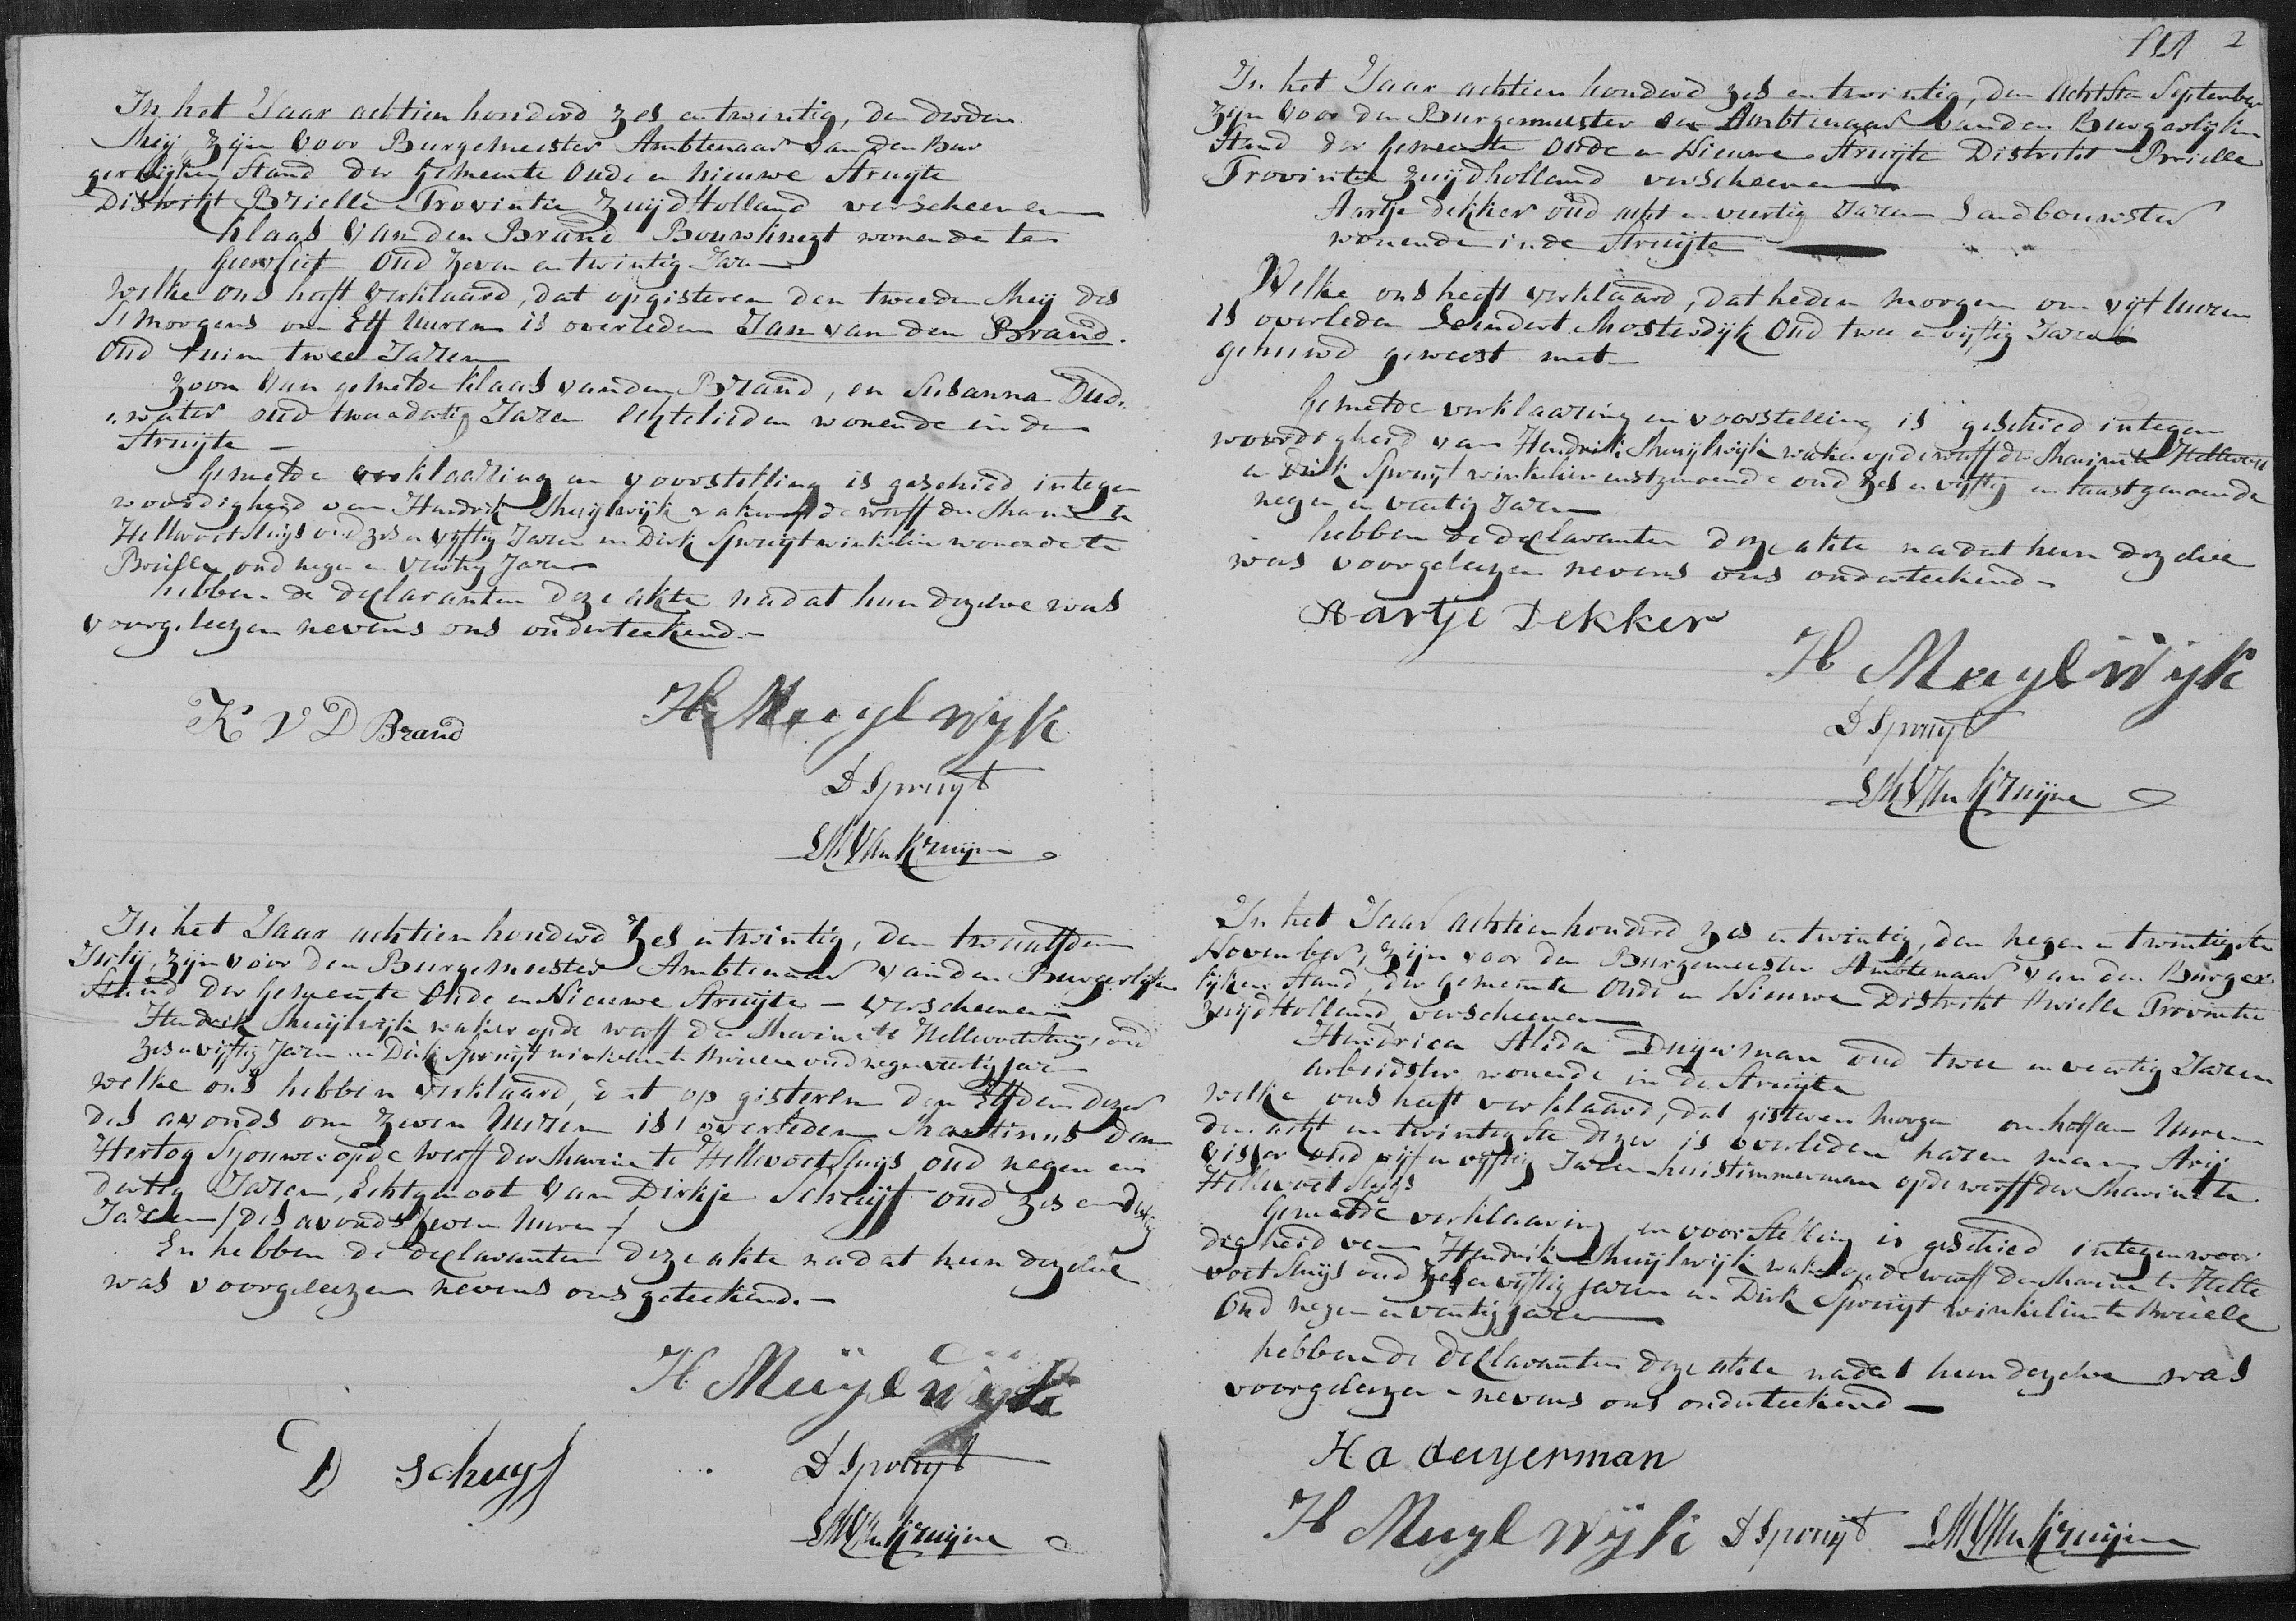 In het Jaar achtien honderd zes en twintig, den derden
Meij, zijn voor Burgemeester Ambtenaar van den Bur
gerlijken Stand der Gemeente Oude en Nieuwe Struijte
Distrikt Brielle Provintie Zuijd Holland verscheenen
Klaas van den Brand Bouwknegt wonende te
Geervliet Oud zeven en twintig Jaren
Welke ons heeft verklaard, dat op gisteren den tweeden Meij des
S morgens om Elf Uuren is overleden Jan van den Brand.
Oud ruim twee Jaren
Zoon van gemelde Klaas van den Brand, en Susanna Oud„
„water oud twee a dertig Jaren Egtelieden wonende in de
Struijte
Gemelde verklaaring en voorstelling is geschied integen
woordigheid van Hendrik Muijlwijk waker op de werff der Marine te
Hellevoetsluijs oud zes en vijftig Jaren en Dirk Spruijt winkelier wonende te
Brielle oud negen en veertig Jaren
hebben de declaranten deze akte nadat hun dezelve was
voorgeleezen nevens ons onderteekend.
K V D Brand
H Muylwyk
D Spruyt
LM Van Kruijne
In het Jaar achtien honderd zes en twintig, den twaalfden
Julij, zijn voor den Burgemeester Ambtenaar van den Burgerlijken
Stand der Gemeente Oude en Nieuwe Struijte verscheenen
Hendrik Muijlwijk waker op de werff der Marine te Hellevoetsluijs, oud
zes en vijftig Jaren en Dirk Spruijt winkelier te Brielle oud negen veertig Jaren
welke ons hebben verklaard, dat op gisteren den Elfden dezer
des avonds om zeven Uuren is overleden Martinus den
Hertog Sjouwer op de werff der Marine te Hellevoetsluijs oud negen en
dertig Jaren, Echtgenoot van Dirkje Schuijf oud zes en dertig
Jaren / des avonds zeven Uuren /
En hebben de declaranten deze akte nadat hun dezelve
was voorgeleezen nevens ons geteekend.
H Muijlwijk
D schuyf
D Spruyt
LM Van Kruijne
2
In het Jaar achtien honderd zes en twintig, den Achtsten September
zijn voor den Burgemeester en Ambtenaar van den Burgerlijken
Stand der Gemeente Oude en Nieuwe Struijte Distrikt Brielle
Provintie Zuijdholland verscheenen
Aartje Dekker oud acht en veertig Jaren Landbouwster
wonende in de Struijte
Welke ons heeft verklaard, dat heden morgen om vijf Uuren
is overleden Leendert Mosterdijk Oud twee en vijftig Jaren
gehuuwd geweest met
Gemelde verklaaring en voorstelling is geschied integen
woordigheid van Hendrik Muijlwijk waker op de werff der Marine te Hellevoet
en Dirk Spruijt winkelier eerstgenoemde oud zes en vijftig en laastgenoemde
negen en veertig Jaren
hebben de declaranten deze akte nadat hun dezelve
was voorgeleezen nevens ons onderteekend
Aartje Dekker
H Muylwijk
D Spruyt
LM Van Kruijne
In het Jaar achtien honderd zes en twintig, den negen en twintigste
November, zijn voor den Burgemeester Ambtenaar van den Burger
lijken Stand, der Gemeente Oude en Nieuwe Distrikt Brielle Provintie
Zuijd Holland, verscheenen
Hendrica Alida Duijerman oud twee en veertig Jaren
Arbeidster wonende in de Struijte
welke ons heeft verklaard, dat gisteren morgen om half een Uuren
den acht en twintigste dezer is overleden haren man Arij
Visser oud vijf en vijftig Jaren huistimmerman op de werff der Marine te
Hellevoetsluijs
Gemelde verklaaring en voorstelling is geschied integenwoor
digheid van Hendrik Muijlwijk waker op de werff der Marine te Helle
voetsluijs oud zes en vijftig Jaren en Dirk Spruijt winkelier te Brielle
Oud negen en veertig Jaren
hebben de declaranten deze akte nadat hun dezelve was
voorgeleezen nevens ons onderteekend
H a duyerman
H Muylwijk D Spruijt LM Van Kruijne